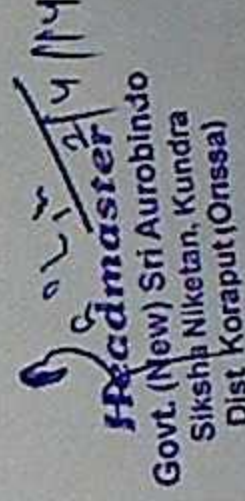 Headmaster
Govt. (New) Sri Aurobindo
Siksha Niketan, Kundra
Dist. Koraput (Orissa)